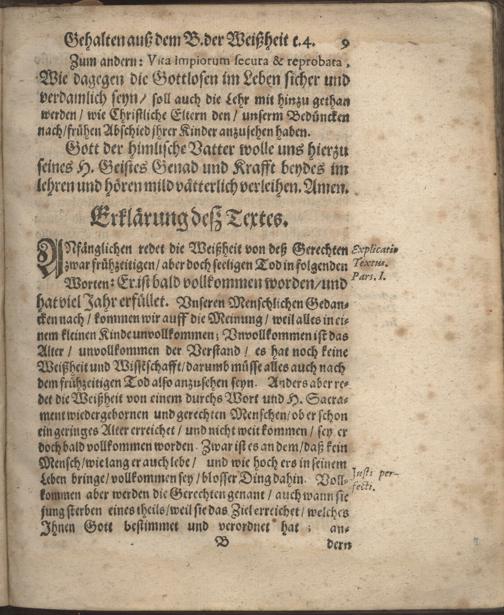 Gehalten auß dem B. der Weißheit c. 4. 9
Zum andern: Vita Impiorum secura & reprobata,
Wie dagegen die Gottlosen im Leben sicher und
verdamlich seyn/ soll auch die Lehr mit hinzu gethan
werden/ wie Christliche Eltern den/ unserm Bedüncken
nach/ frühen Abschied jhrer Kinder anzusehen haben.
Gott der himlische Vatter wolle uns hierzu
seines H. Geistes Genad und Krafft beydes im
lehren und hören mild vätterlich verleihen. Amen.
Erklärung deß Textes.
ANfänglichen redet die Weißheit von deß Gerechten
zwar frühzeitigen/ aber doch seeligen Tod in folgenden
Worten: Er ist bald vollkommen worden/ und
hat viel Jahr erfüllet. Unseren Menschlichen Gedan-
cken nach/ kommen wir auff die Meinung/ weil alles in ei-
nem kleinen Kinde unvollkommen; Unvollkommen ist das
Alter/ unvollkommen der Verstand/ es hat noch keine
Weißheit und Wissschafft/ darumb müsse alles auch nach
dem frühzeitigen Tod also anzusehen seyn. Anders aber re-
det die Weißheit von einem durchs Wort und H. Sacra-
ment wiedergebornen und gerechten Menschen/ ob er schon
ein geringes Alter erreichet/ und nicht weit kommen/ sey er
doch bald vollkommen worden. Zwar ist es an dem/ daß kein
Mensch/ wie lang er auch lebt/ und wie hoch ers in seinem
Leben bringe/ vollkommen sey/ blosser Ding dahin. Voll-
kommen aber werden die Gerechten genant/ auch wann sie
jung sterben eines theils/ weil sie das Ziel erreichet/ welches
Ihnen Gott bestimmet und verordnet hat; an-
B dern
Explicatio
Textus.
Pars. I.
Justi per-
fecti.